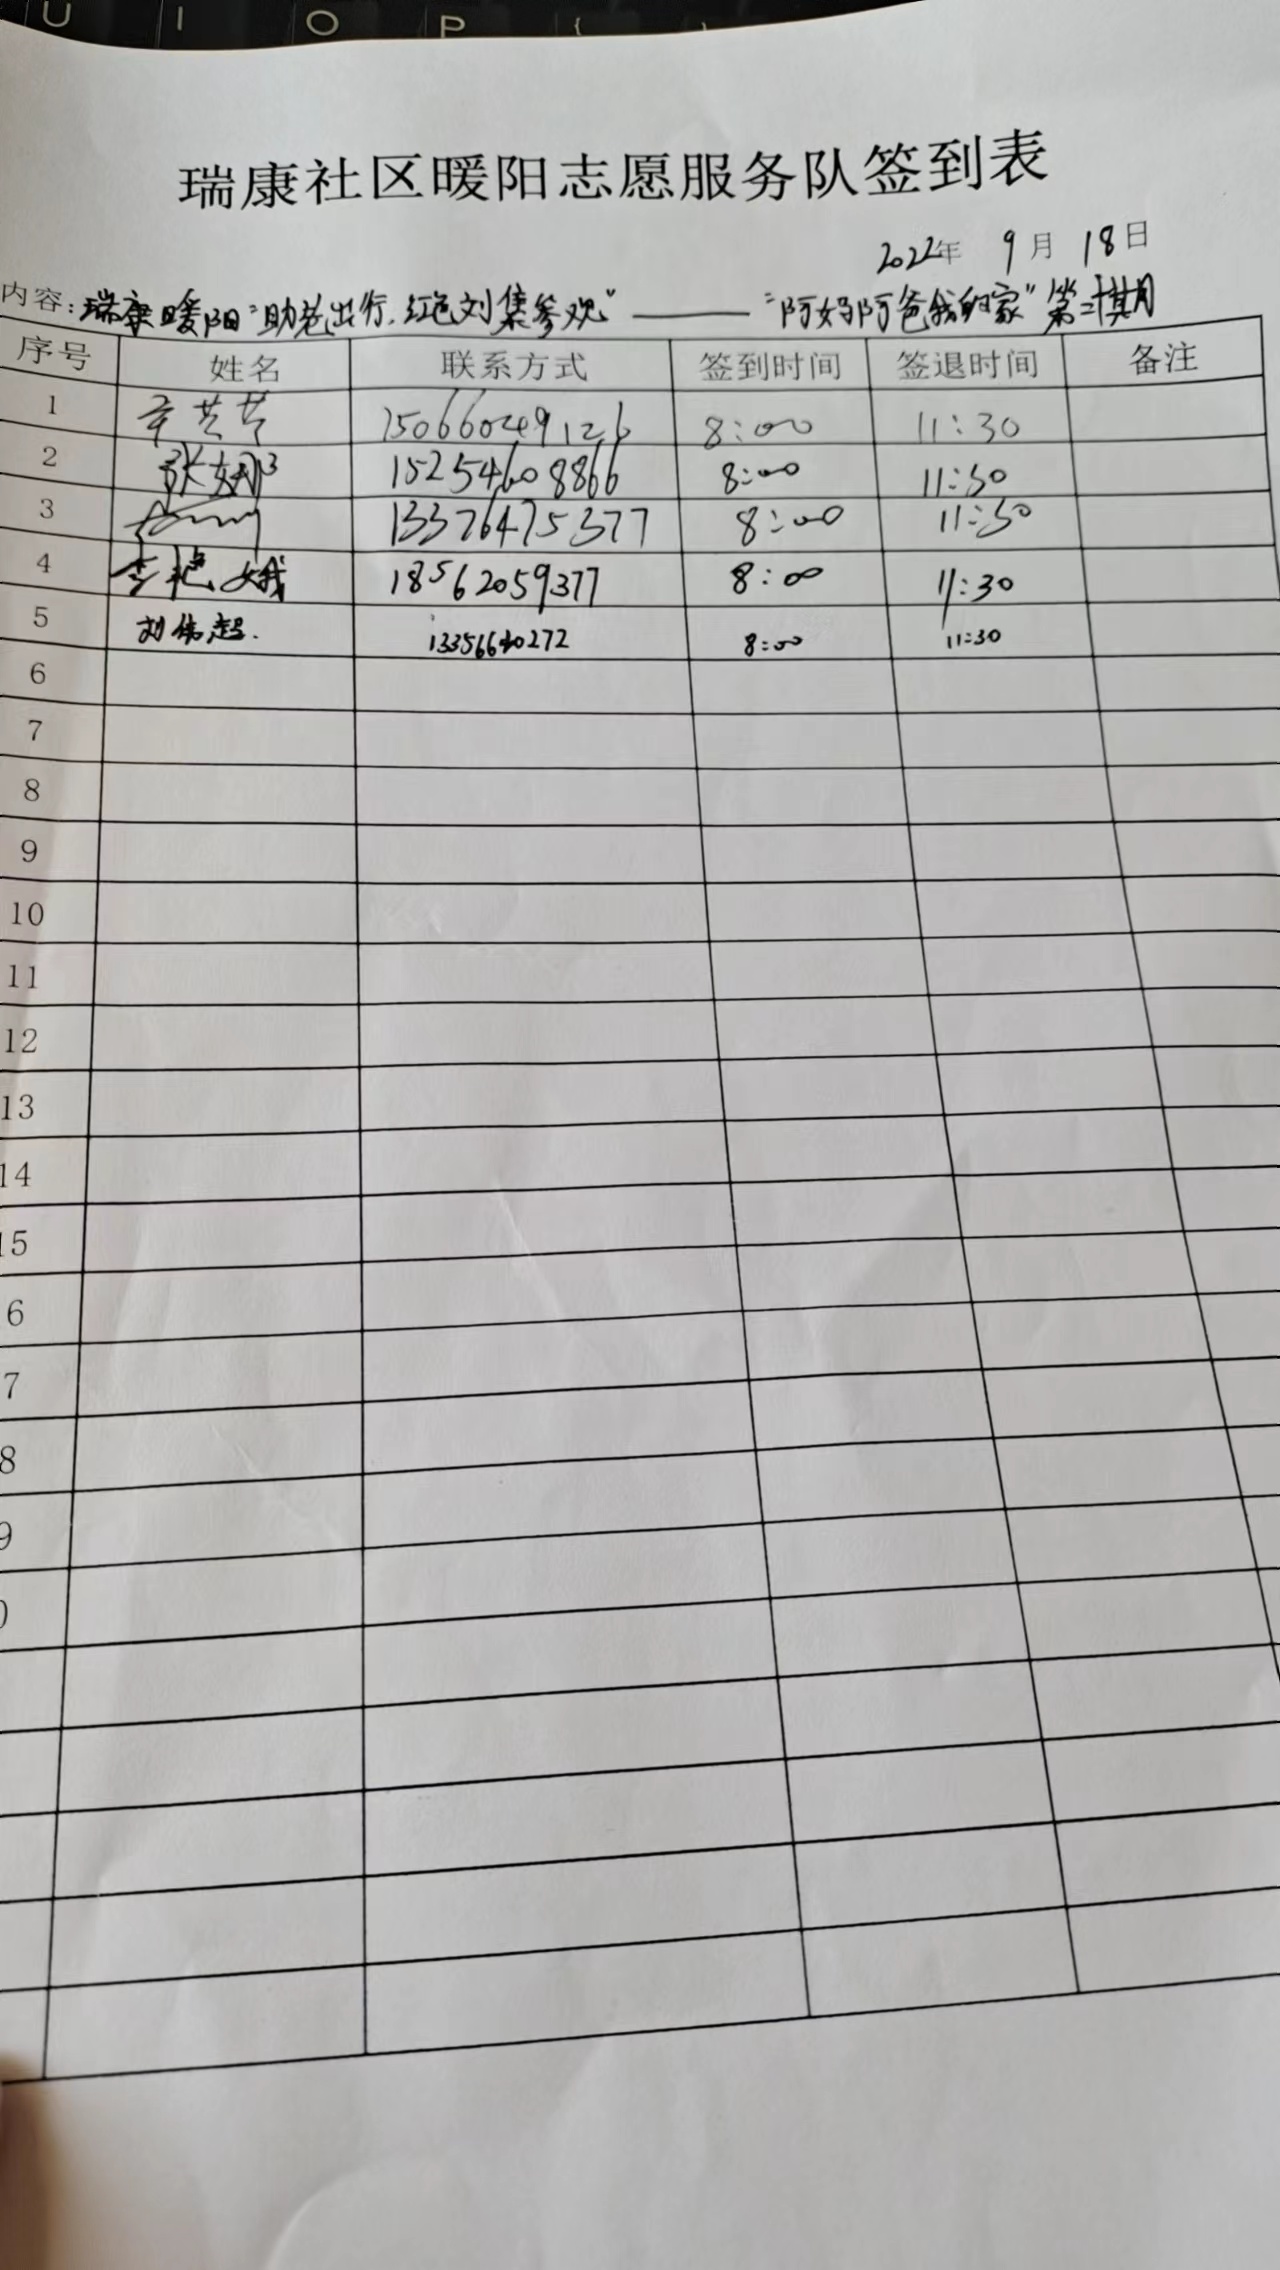 U I O P { }
瑞康社区暖阳志愿服务队签到表
2022年 9月 18日
内容:瑞康暖阳"助老出行.红色刘集参观"——"阿妈阿爸我的家"第二十期
序号 姓名 联系方式 签到时间 签退时间 备注
1 15066049126 8:00 11:30
2 张娜 15254608866 8:00 11:30
3 13376475377 8:00 11:30
4 李艳娥 18562059377 8:00 11:30
5 刘伟超. 8:00 11:30
6
7
8
9
10
11
12
13
14
15
6
7
8
9
0